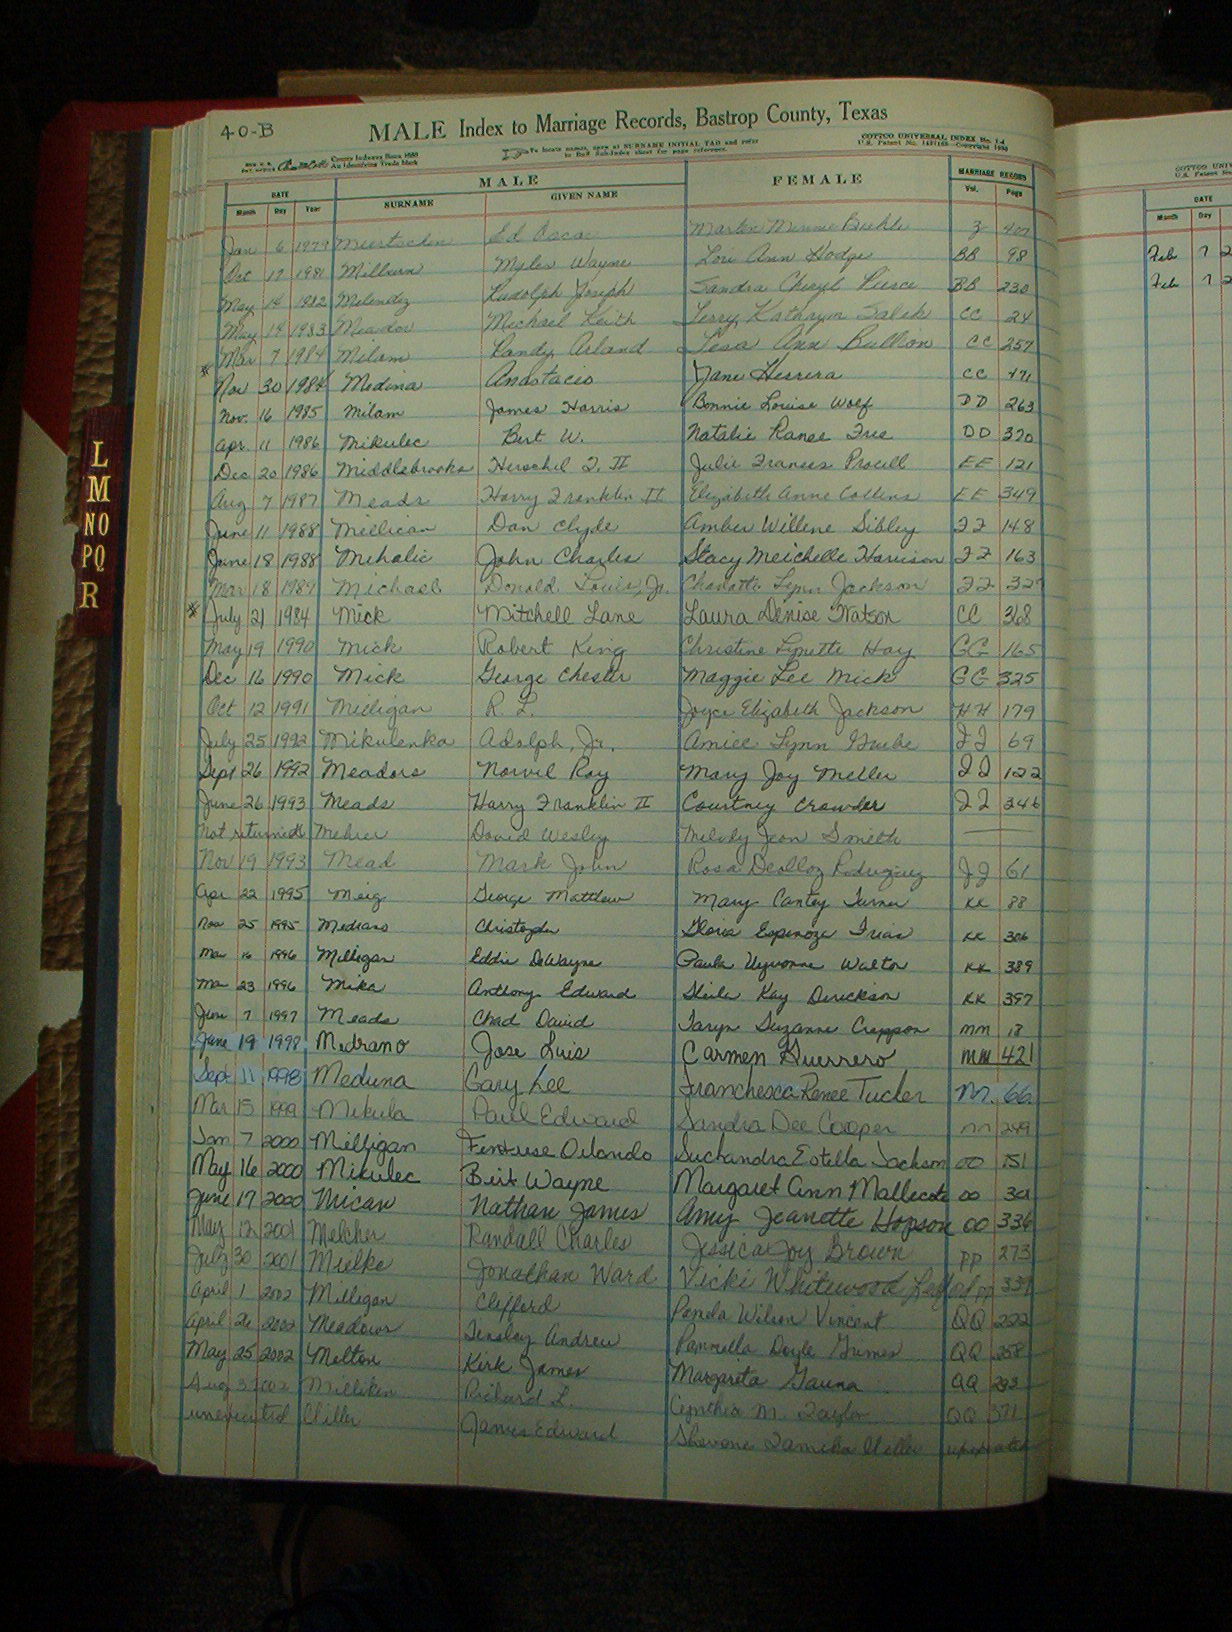 40-B
MALE Index to Marriage Records, Bastrop County, Texas
County Indexes Since 1888
An Identifying Trade Mark
To locate names, open at SURNAME INITIAL TAB and refer
COTTCO UNIVERSAL INDEX No. 1-4
DATE MALE FEMALE MARRIAGE RECORD
Month Day Year SURNAME GIVEN NAME Vol. Page
Jan 6 1979 Ed Oscar 3 407
Oct 17 1981 Milburn Myles Wayne Lori Ann Hodge BB 98
May 14 1982 Melendez Rudolph Joseph Sandra Cheryl Pierce BB 230
May 14 1983 Meador Michael Keith Terry Kathryn Salek CC 24
Mar 7 1984 Milam Randy Arland Lesa Ann Bullion CC 257
* Nov 30 1984 Medina Anastacio Jane Herrera CC 471
Nov. 16 1985 Milam James Harris Bonnie Louise Wolf DD 263
Apr. 11 1986 Mikulec Bert W. Natalie Ranae DD 370
Dec 20 1986 Middlebrooks Herschel F. II Julie Frances Procell EE 121
Aug 7 1987 Meads Harry Franklin II Elizabeth Anne Collins EE 349
June 11 1988 Millican Dan Clyde Amber Willene Sibley FF 148
June 18 1988 Mihalic John Charles Stacy Meichelle Harrison FF 163
Mar 18 1989 Michaels Donald Louis, Jr. Charlotte Lynn Jackson FF
* July 21 1984 Mick Mitchell Lane Laura Denise Watson CC 368
May 19 1990 Mick Robert King Christine Lynette Hay GG 165
Dec 16 1990 Mick George Chester Maggie Lee Mick GG 325
Oct 12 1991 Milligan R. L. Joyce Elizabeth Jackson HH 179
July 25 1992 Mikulenka Adolph, Jr. Amiee Lynn 69
Sept 26 1992 Meadors Norvil Roy Mary Joy Meller 122
June 26 1993 Meads Harry Franklin II Courtney Crowder 346
Not returned Mehrer David Wesley Melody Jean Smith —
Nov 19 1993 Mead Mark John Rosa Rodriguez JJ 61
Apr 22 1995 Meig George Matthew Mary Cantey Turner KK 88
Nov 25 1995 Medrano Christopher Gloria Espinoza Frias KK 306
Mar 16 1996 Milligan Eddie DeWayne Paula Uyvonne Walton KK 389
Mar 23 1996 Mika Anthony Edward Sheila Kay Derickson KK 397
June 7 1997 Meads Chad David Taryn Suzanne Crappson MM 18
June 19 1998 Medrano Jose Luis Carmen Guerrero MM 421
Sept 11 1998 Meduna Gary Lee Franchesca Renee Tucker 66
Mar 13 1999 Mikula Paul Edward Sandra Dee Cooper nn 249
Jan 7 2000 Milligan Fentrese Orlando Suchandra Estella Jackson OO 151
May 16 2000 Mikulec Birt Wayne Margaret Ann Mallecote OO 301
June 17 2000 Mican Nathan James Amy Jeanette Hopson OO 336
May 12 2001 Melcher Randall Charles Jessica Joy Brown pp 273
July 30 2001 Mielke Jonathan Ward Vicki Whitewood pp 339
April 1 2002 Milligan Clifford Wilson Vincent QQ 222
April 26 2002 Meadows Tinsley Andrew Pamella Doyle Grimes QQ 258
May 25 2002 Melton Kirk James Margarita Gauna QQ 293
Aug 3 2002 Milliken Richard L. Cynthia M. Taylor QQ 371
unexecuted Miller James Edward Shavone Tamika Miller unexecuted
L
M
NO
PQ
R
DATE
Month Day
Feb 7 2
Feb 7 2